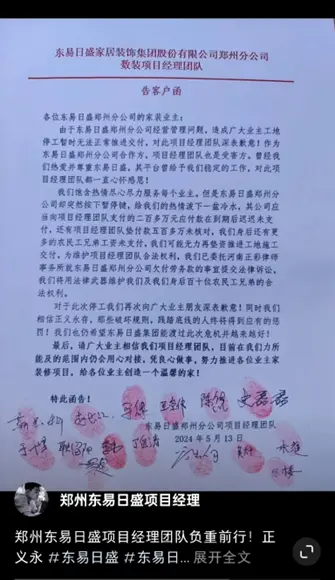 东易日盛家居装饰集团股份有限公司郑州分公司
数装项目经理团队
告客户函
各位东易日盛郑州分公司的家装业主：
由于东易日盛郑州分公司经营管理问题，造成广大业主工地
停工暂时无法正常推进交付，对此项目经理团队深表歉意！作为
东易日盛郑州分公司合作方，项目经理团队也是受害方。曾经我
们热爱并尊重东易日盛，其平台曾给予我们稳定的工作，对此项
目经理团队都一直心怀感恩！
我们饱含热情尽心尽力服务每个业主，但是东易日盛郑州分
公司却突然按下暂停键，给我们的热情泼下一盆冷水，其公司应
当向项目经理团队支付的二百多万元应付款在到期后迟迟未支
付，还有项目经理团队垫付款五百多万未核对。我们身后还有更
多的农民工兄弟工资未支付，我们可能无力再垫资推进工地施工
交付。为维护项目经理团队合法权利，我们已委托河南正彩律师
事务所就东易日盛郑州分公司欠付劳务款的事宜提交法律诉讼。
我们将用法律武器维护我们及我们身后百十位农民工兄弟的合
法权利。
对于此次停工我们再次向广大业主朋友深表歉意！同时我们
相信正义永存，那些破坏规则，践踏底线的人终将得到应有的惩
罚！我们也仍希望东易日盛集团能渡过此次危机并越来越好！
最后，请广大业主相信我们项目经理团队，目前在我们力所
能及的范围内仍会用心对接，凭良心做事，努力推进各位业主家
装修项目，给各位业主创造一个温馨的家！
特此函告！
东易日盛郑州分公司项目经理团队
2024 年 5 月 13 日
郑州东易日盛项目经理
郑州东易日盛项目经理团队负重前行！正
义永 #东易日盛 #东易日... 展开全文